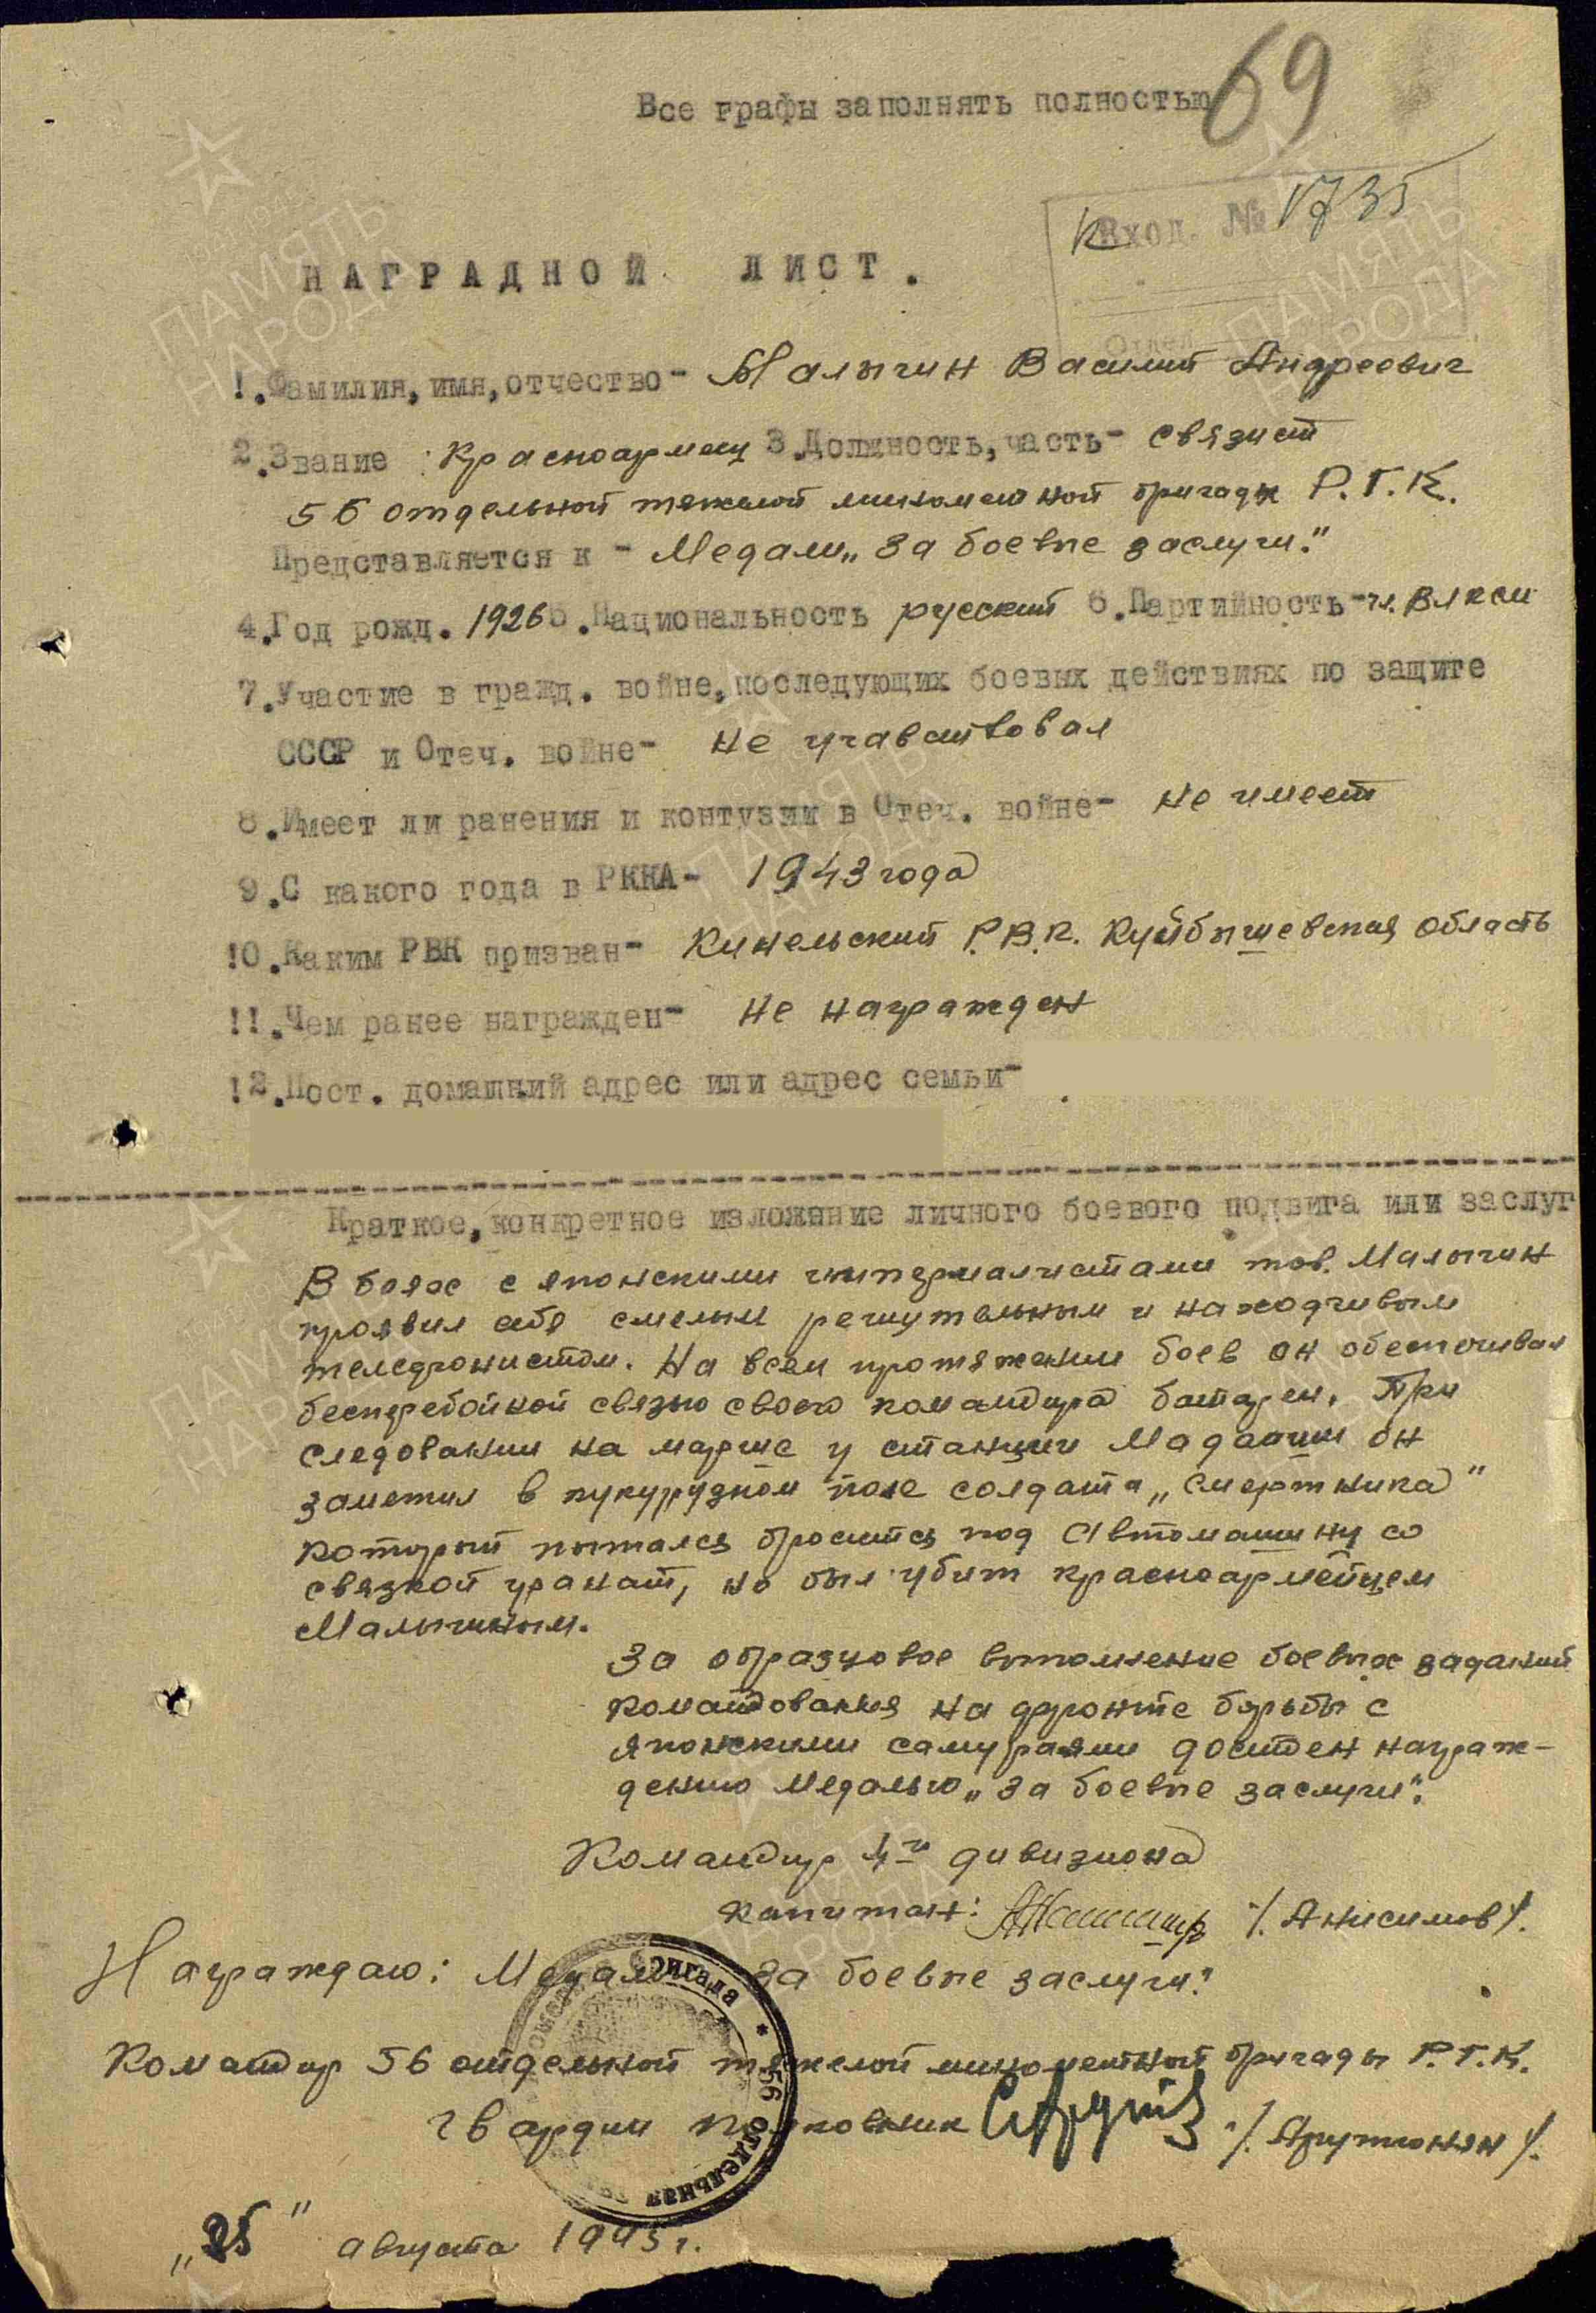 Все графы заполнять полностью
69
Вход. № 1735
Отдел
НАГРАДНОЙ ЛИСТ.
1.Фамилия, имя, отчество- Малыгин Василий Андреевич
2.Звание Красноармеец 3.Должность, часть- связист
56 отдельной тяжелой минометной бригады Р.Г.К.
Представляется к - Медали „За боевые заслуги."
4.Год рожд. 1926 5.Национальность русский 6.Партийность- чл. ВЛКСМ
7.Участие в гражд. войне, последующих боевых действиях по защите
СССР и Отеч. войне- не учавствовал
8.Имеет ли ранения и контузии в Отеч. войне- не имеет
9.С какого года в РККА- 1943 года
10.Каким РВК призван- Кинельский Р.В.К. Куйбышевская область
11.Чем ранее награжден- не награжден
12.Пост. домашний адрес или адрес семьи-
Краткое, конкретное изложение личного боевого подвига или заслуг
В боях с японскими империалистами тов. Малыгин
проявил себя смелым решительным и находчивым
телефонистом. На всем протяжении боев он обеспечивал
бесперебойной связью своего командира батареи. При
следовании на марше у станции Мадаоши он
заметил в кукурузном поле солдата „смертника"
который пытался бросится под автомашину со
связкой гранат, но был убит красноармейцем
Малыгиным.
За образцовое выполнение боевых заданий
командования на фронте борьбы с
японскими самураями достоен награж-
дению медалью „За боевые заслуги".
Командир 4го дивизиона
капитан: /. Анисимов /.
Награждаю: Медалью За боевые заслуги"
Командир 56 отдельной тяжелой минометной бригады Р.Г.К.
гвардии полковник /. Арутюнян /.
бригада * 56 отдельная
„25" августа 1945 г.
ПАМЯТЬ НАРОДА